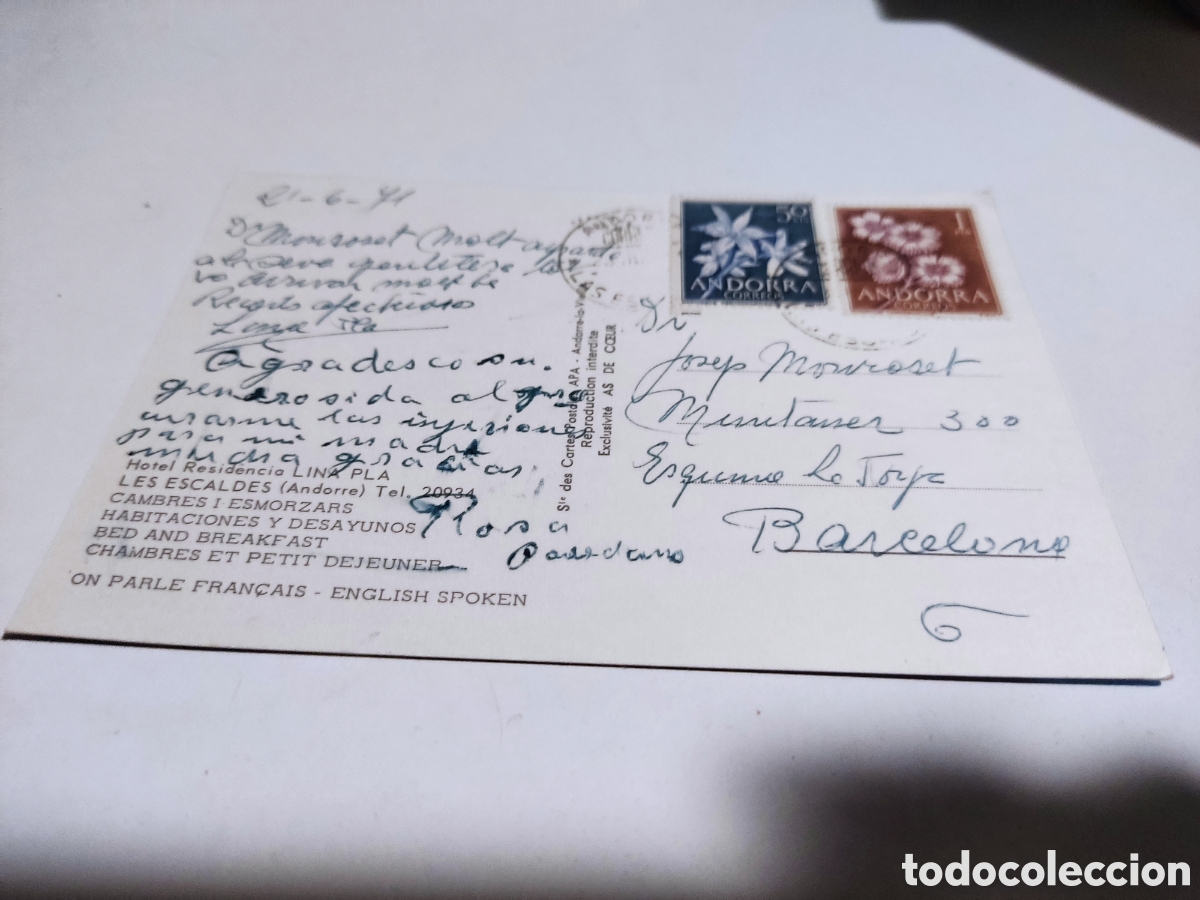 21-6-71
Dr Monroset Molt agrait
a la seva gentilesa
va arrivar molt be
Records afectuosos
Lina Pla
Agradesco su
generosida al
las injeciones
para mi madre
mucha gracias.
Rosa
Hotel Residencia LINA PLA
LES ESCALDES (Andorre) Tel. 20934
CAMBRES I ESMORZARS
HABITACIONES Y DESAYUNOS
BED AND BREAKFAST
CHAMBRES ET PETIT DEJEUNER
ON PARLE FRANÇAIS - ENGLISH SPOKEN
Sté des Cartes Postales APA - Andorre-la-Vieille
Reproduction interdite
Exclusivité AS DE CŒUR
50
ANDORRA
CORREOS
1
ANDORRA
CORREOS
Dr
Josep Monroset
Muntaner 300
Barcelona
6
todocoleccion